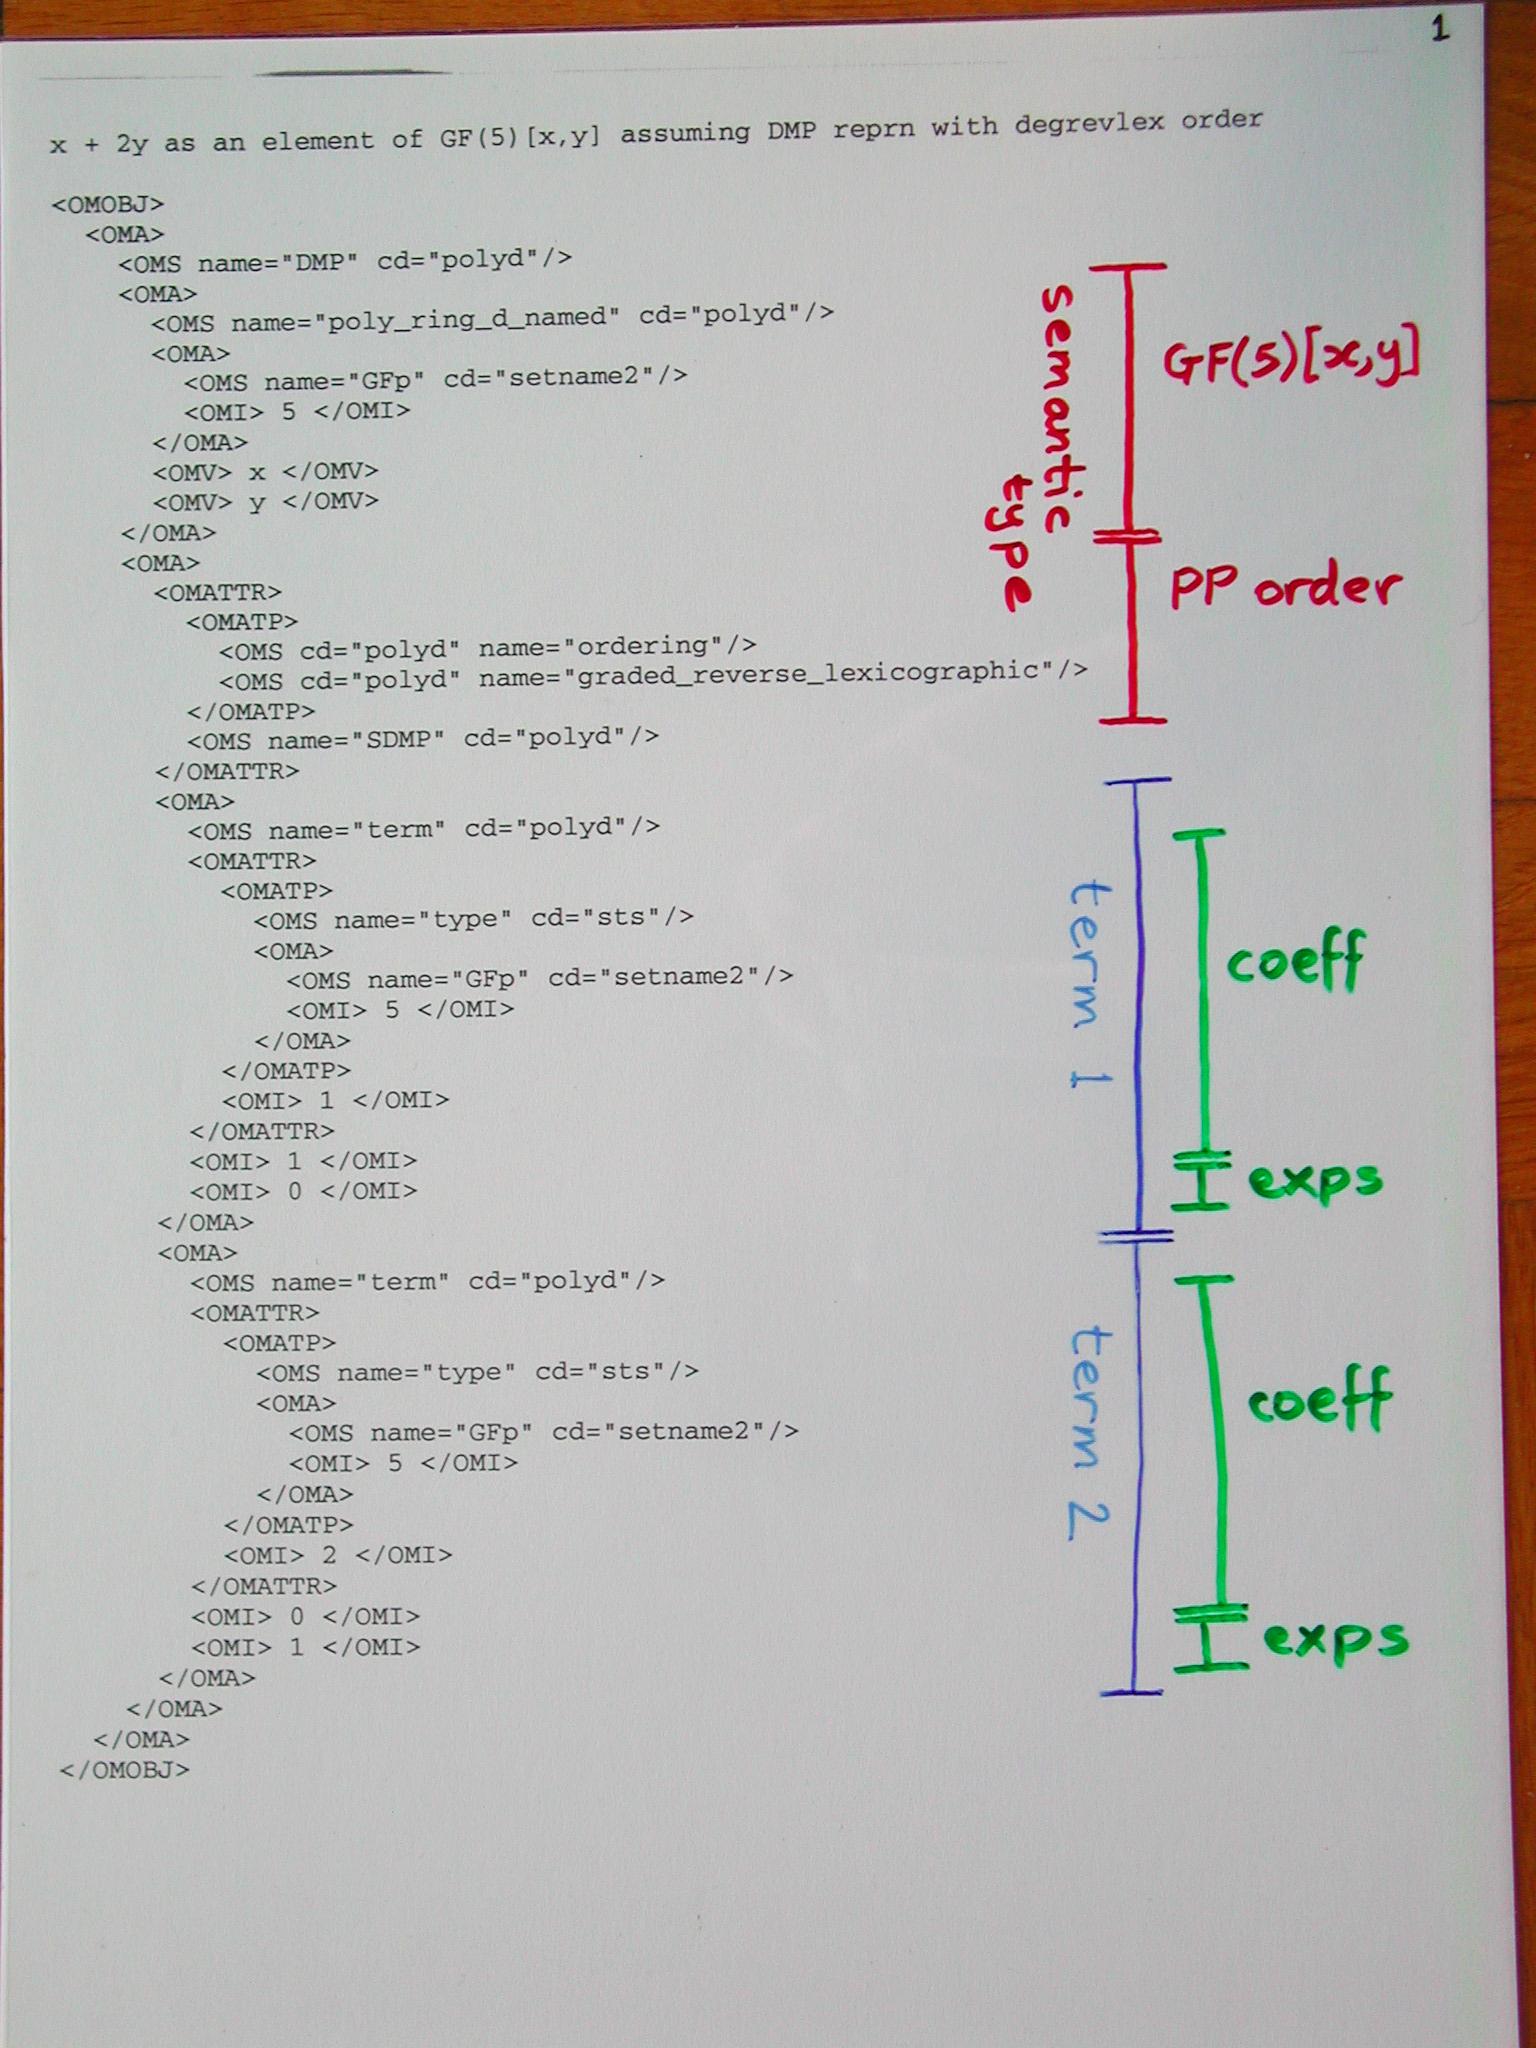 1
x + 2y as an element of GF(5)[x,y] assuming DMP reprn with degrevlex order
<OMOBJ>
<OMA>
<OMS name="DMP" cd="polyd"/>
<OMA>
<OMS name="poly_ring_d_named" cd="polyd"/>
<OMA>
<OMS name="GFp" cd="setname2"/>
<OMI> 5 </OMI>
</OMA>
<OMV> x </OMV>
<OMV> y </OMV>
</OMA>
<OMA>
<OMATTR>
<OMATP>
<OMS cd="polyd" name="ordering"/>
<OMS cd="polyd" name="graded_reverse_lexicographic"/>
</OMATP>
<OMS name="SDMP" cd="polyd"/>
</OMATTR>
<OMA>
<OMS name="term" cd="polyd"/>
<OMATTR>
<OMATP>
<OMS name="type" cd="sts"/>
<OMA>
<OMS name="GFp" cd="setname2"/>
<OMI> 5 </OMI>
</OMA>
</OMATP>
<OMI> 1 </OMI>
</OMATTR>
<OMI> 1 </OMI>
<OMI> 0 </OMI>
</OMA>
<OMA>
<OMS name="term" cd="polyd"/>
<OMATTR>
<OMATP>
<OMS name="type" cd="sts"/>
<OMA>
<OMS name="GFp" cd="setname2"/>
<OMI> 5 </OMI>
</OMA>
</OMATP>
<OMI> 2 </OMI>
</OMATTR>
<OMI> 0 </OMI>
<OMI> 1 </OMI>
</OMA>
</OMA>
</OMA>
</OMOBJ>
semantic
type
GF(5)[x,y]
PP order
term 1
coeff
exps
term 2
coeff
exps